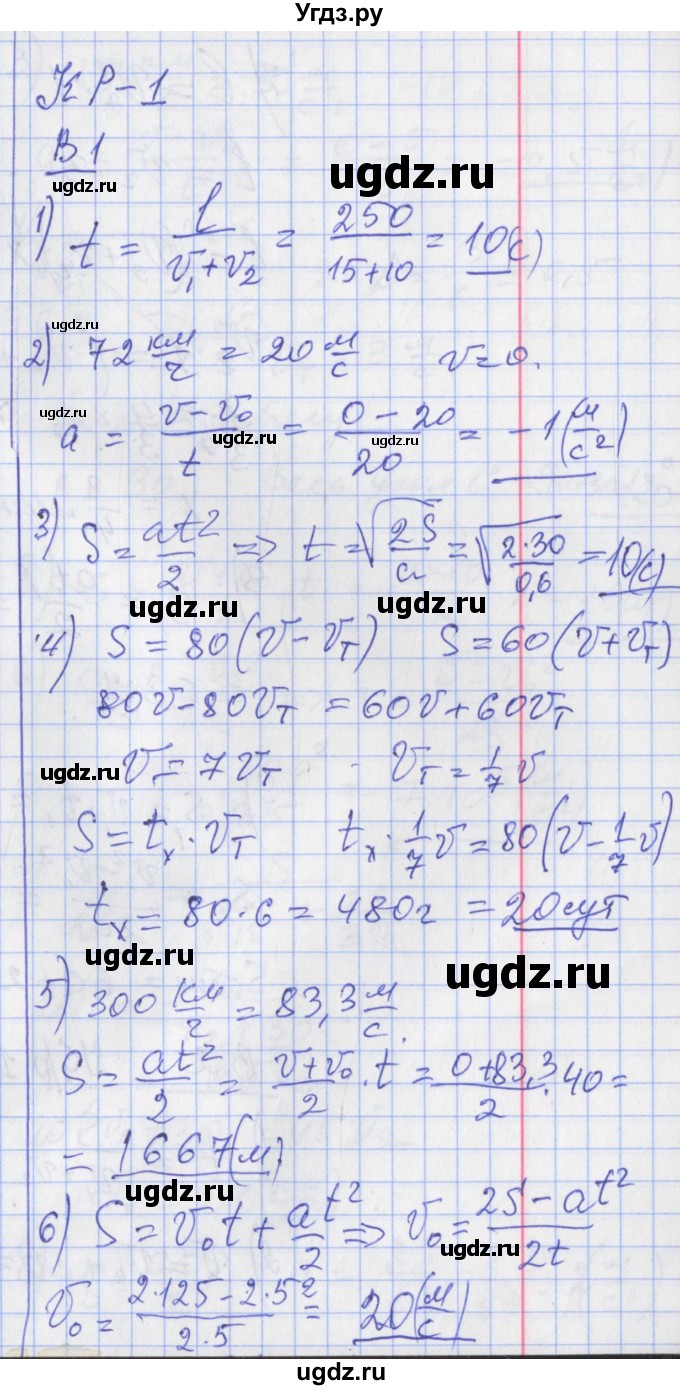 Угдз.ру
КР-1
В1
ugdz.ru
ugdz.ru
1) t = l/(v₁+v₂) = 250/(15+10) = 10(с)
ugdz.ru
2) 72 км/ч = 20 м/с v=0.
ugdz.ru ugdz.ru ugdz.ru
a = (v-v₀)/t = (0-20)/20 = -1(м/с²)
3) S = at²/2 => t = √(2S/a) = √(2·30/0,6) = 10(с)
ugdz.ru ugdz.ru
4) S = 80(v-vT) S = 60(v+vT)
80v-80vT = 60v+60vT
ugdz.ru
v = 7vT vT = 1/7 v
S = tx·vT tx·1/7 v = 80(v-1/7 v)
tx = 80·6 = 480ч = 20сут
ugdz.ru
ugdz.ru
5) 300 км/ч = 83,3 м/с.
S = at²/2 = (v+v₀)/2 · t = (0+83,3)/2 · 40 =
= 1667(м)
ugdz.ru
6) S = v₀t + at²/2 => v₀ = (2S-at²)/2t
ugdz.ru
v₀ = (2·125-2·5²)/(2·5) = 20(м/с)
ugdz.ru